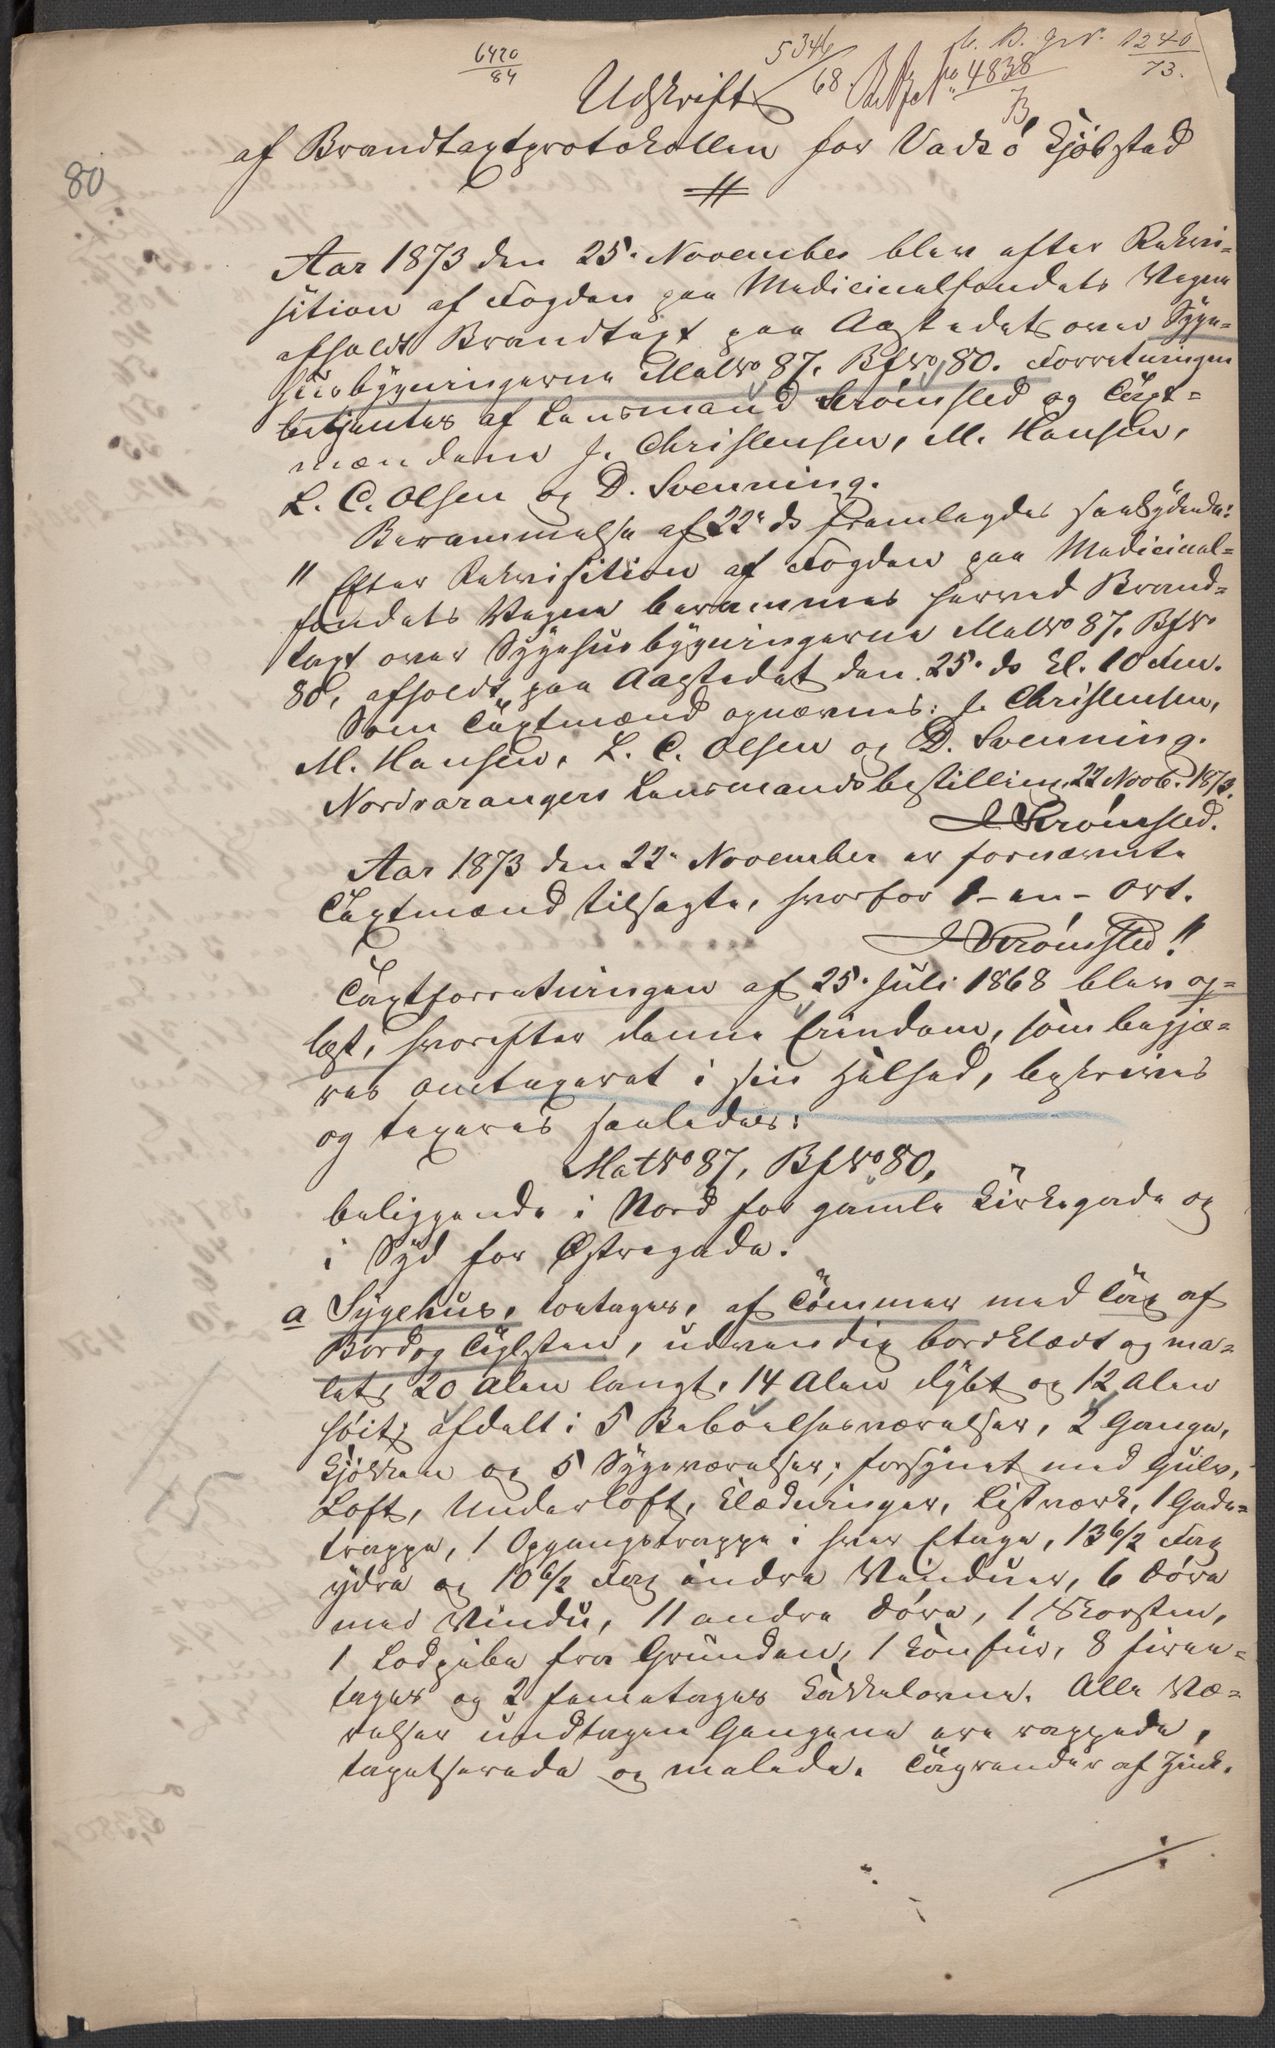 6420/84
5346/68
B. J. No. 4838
B
1240/73.
80
Udskrift
af Brandtaxtprotokollen for Vadsø Kjøbstad
Aar 1873 den 25. November blev efter Rekvi-
sition af Fogden paa Medicinalfondets Vegne
afholdt Brandtaxt paa Aastedet over Syge-
husbygningerne Mat No 87, Bf No 80. Forretningen
betjentes af Lensmand Strømsted og Taxt-
mændene J. Christensen, M. Hansen,
L. C. Olsen og D. Svenning.
Berammelse af 22. ds fremlagdes saalydende:
"Efter Rekvisition af Fogden paa Medicinal-
fondets Vegne berammes herved Brand-
taxt over Sygehusbygningerne Mat No 87, Bf No
80, afholdt paa Aastedet den 25. ds Kl. 10 Fm.
Som Taxtmænd opnævnes: J. Christensen,
M. Hansen, L. C. Olsen og D. Svenning.
Nordvarangers Lensmandsbestilling 22 Novb. 1873.
J. Strømsted.
Aar 1873 den 22. November er fornævnte
Taxtmænd tilsagte, hvorfor 1 - en - Ort.
J. Strømsted."
Taxtforretningen af 25. Juli 1868 blev op-
læst, hvorefter denne Eiendom, som begjæ-
res omtaxeret i sin Helhed, beskrives
og taxeres saaledes:
Mat No 87, Bf No 80,
beliggende i Nord for gamle Kirkegade og
i Syd for Østregade.
a Sygehus, toetages, af Tømmer med Tag af
Bord og Taglsten, udvendig bordklædt og ma-
let, 20 Alen langt, 14 Alen dybt og 12 Alen
høit; afdelt i 5 Beboelsesværelser, 2 Gange,
Kjøkken og 5 Sygeværelser; forsynet med Gulv,
Loft, Underloft, Klædninger, Listværk, 1 Gade-
trappe, 1 Opgangstrappe i hver Etage, 13 6/2 Fag
ydre og 10 6/2 Fag indre Vinduer, 6 Døre
med Vindu, 11 andre Døre, 1 Skorsten,
1 Lodpibe fra Grunden, 1 Komfur, 8 firee-
tages og 2 femetages Kakkelovne. Alle Væ-
relser undtagen Gangene ere rappede,
tapetserede og malede. Tagrender af Zink.